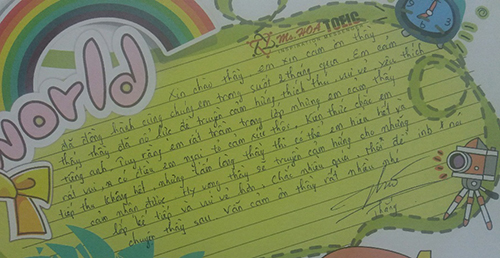 world
Ms HOA TOEIC
Xin chào thầy, em xin cảm ơn thầy
đã đồng hành cùng chúng em trong suốt 2 tháng qua. Em cảm
thấy thầy đã nỗ lực để truyền cảm hứng, thích thú, vui vẻ, yêu thích
tiếng anh. Tuy rằng em rất trầm trong lớp nhưng em cảm thấy
rất vui, và có điều em ngại tỏ cảm xúc thôi. Kiến thức chắc em
tiếp thu không hết, nhưng tấm lòng thầy thì có thể em hiểu hết và
cảm nhận được. Hy vọng thầy sẽ truyền cảm hứng cho những
lớp kế tiếp và vui vẻ hơn. Chắc nhiêu quá, thôi để inb l nói
chuyện thầy sau. Vẫn cảm ơn thầy rất nhiều nhé